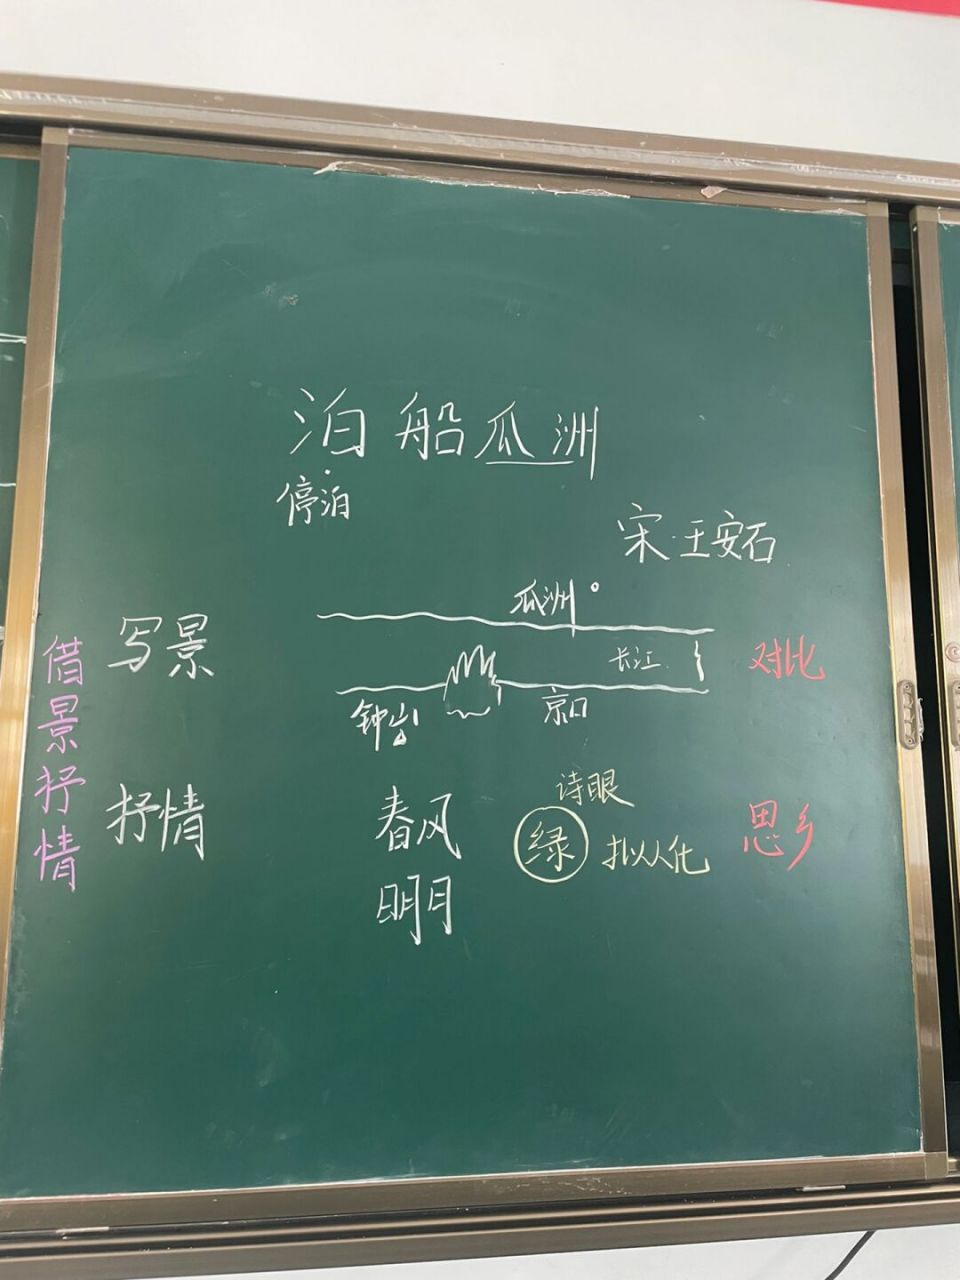 泊船瓜洲
停泊
宋·王安石
瓜洲
写景
长江
对比
钟山
京口
借景抒情
抒情
春风
诗眼
绿
拟人化
思乡
明月